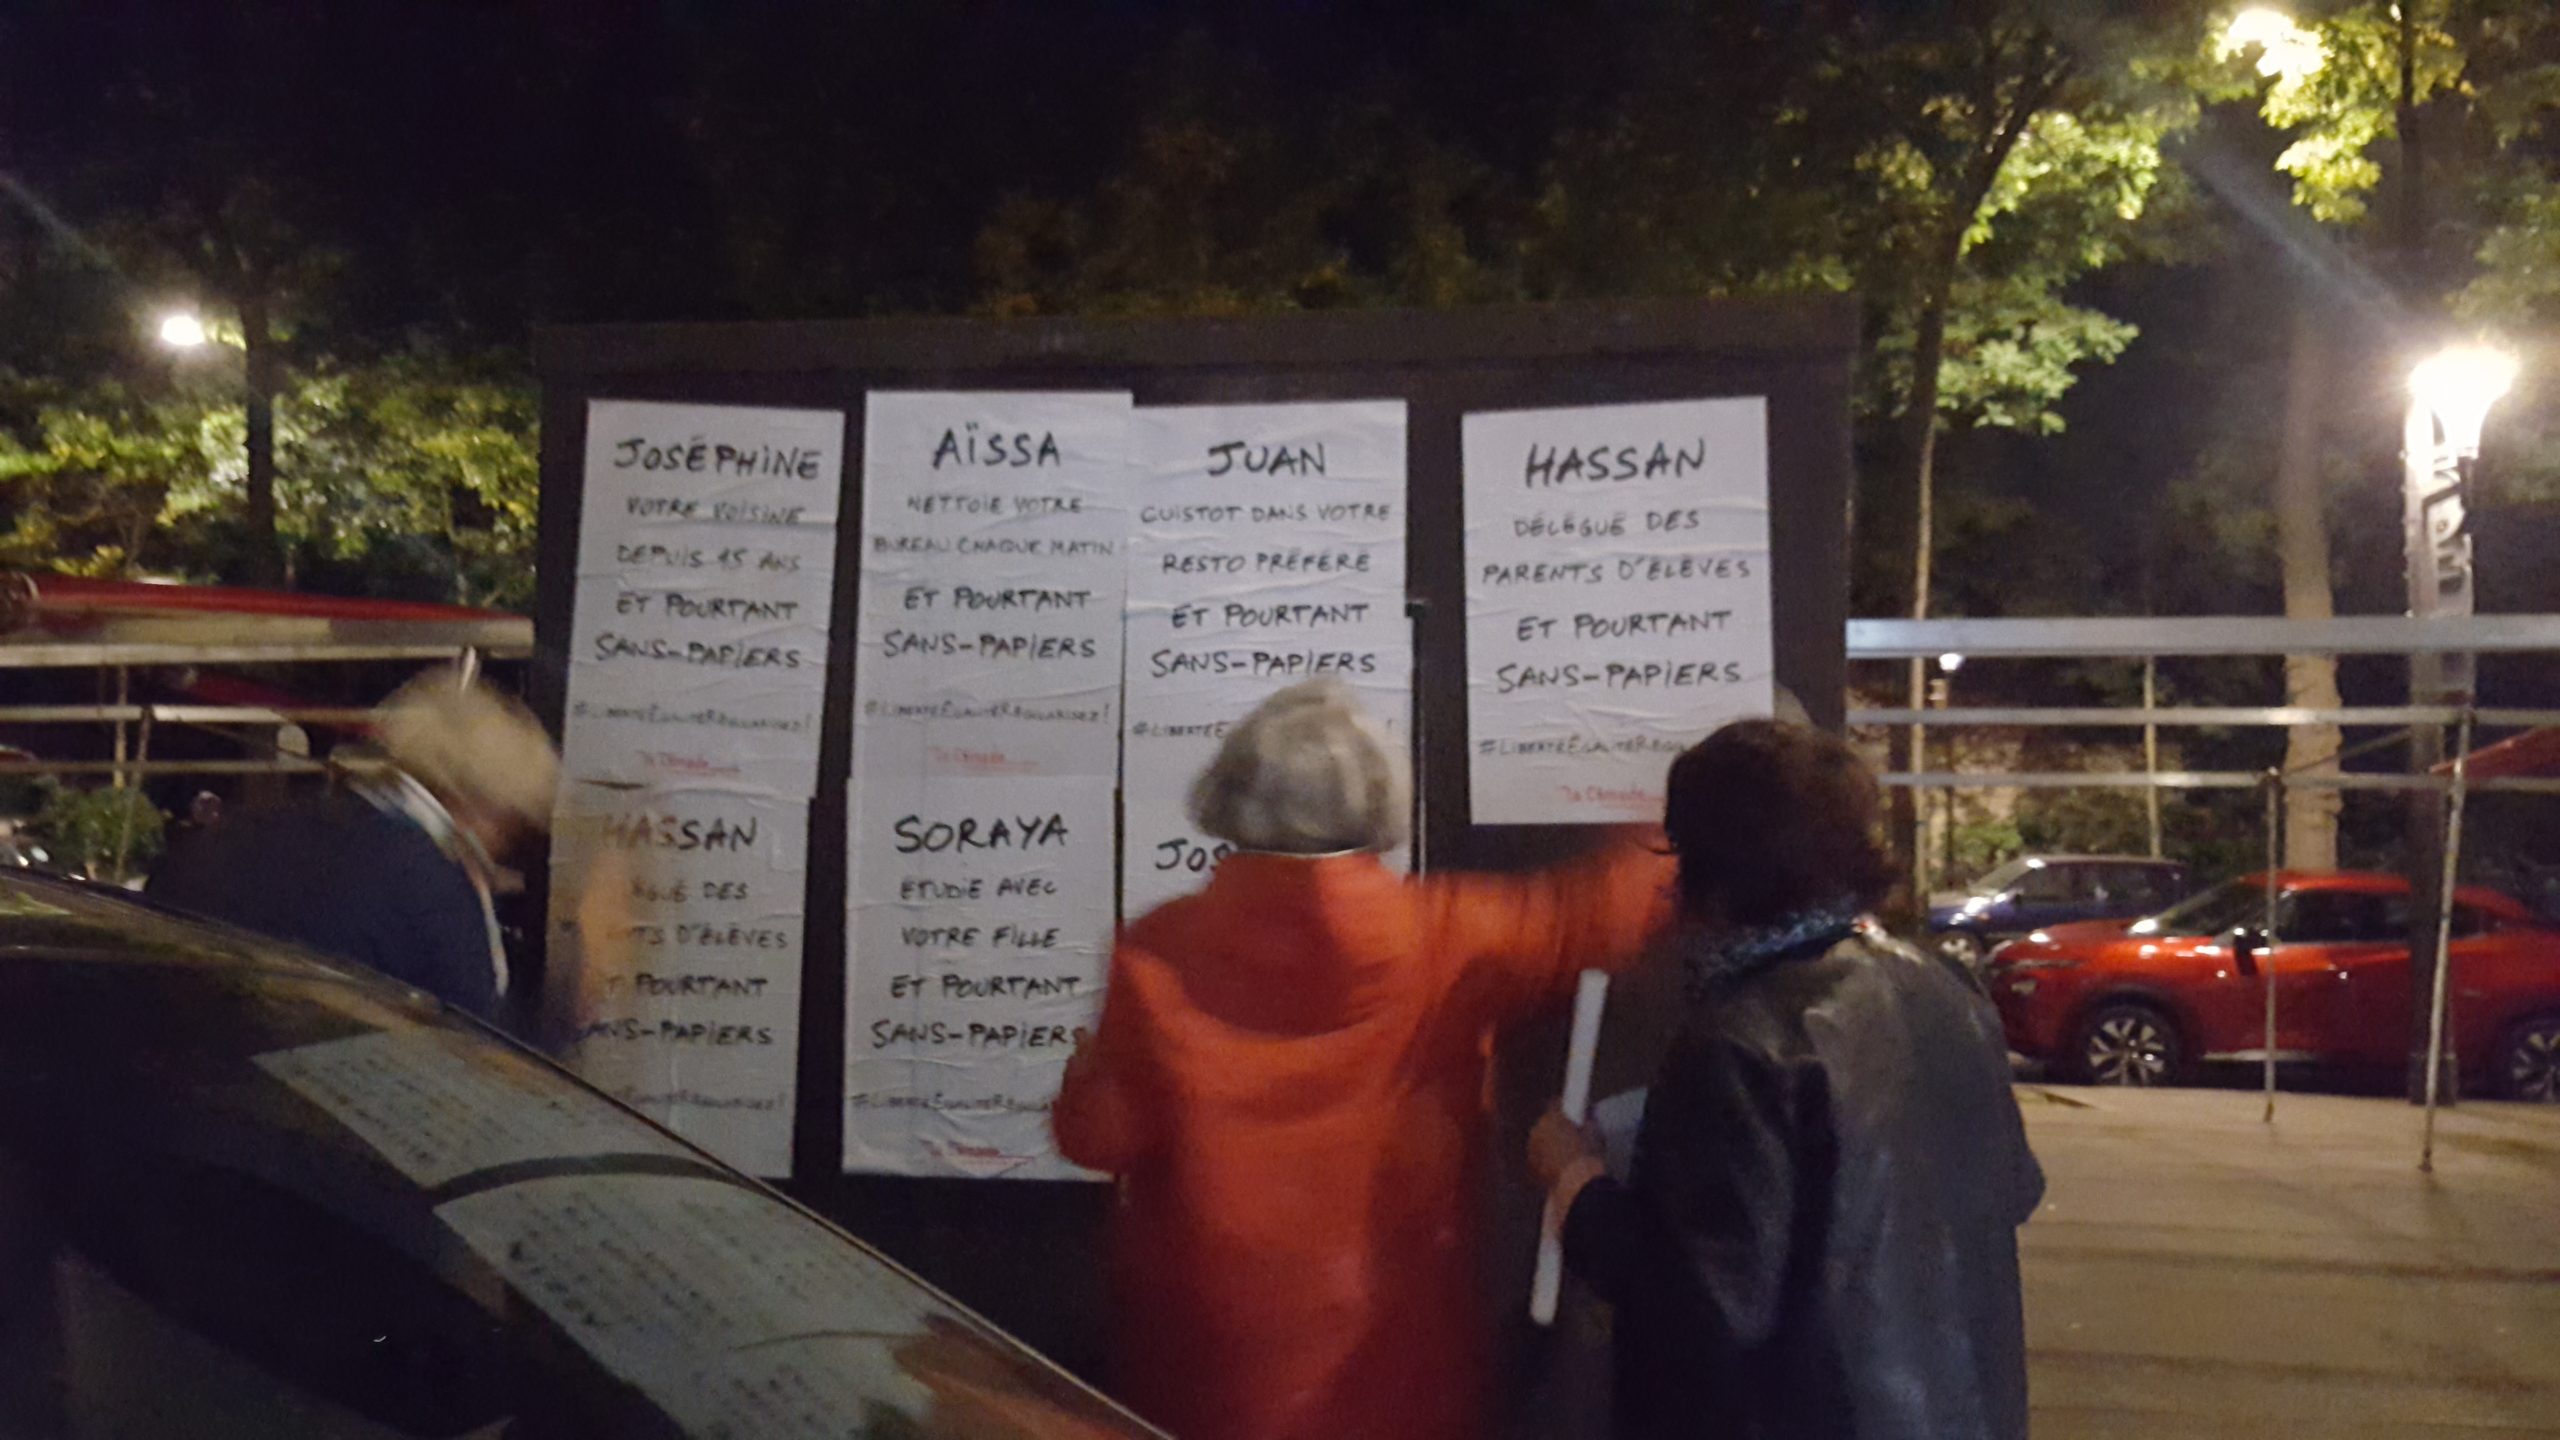 JOSÉPHINE
VOTRE VOISINE
DEPUIS 15 ANS
ET POURTANT
SANS-PAPIERS
#LIBERTÉÉGALITÉRÉGULARISEZ!
La Cimade
AÏSSA
NETTOIE VOTRE
BUREAU CHAQUE MATIN
ET POURTANT
SANS-PAPIERS
#LIBERTÉÉGALITÉRÉGULARISEZ!
La Cimade
JUAN
CUISTOT DANS VOTRE
RESTO PRÉFÉRÉ
ET POURTANT
SANS-PAPIERS
#LIBERTÉÉ
HASSAN
DÉLÉGUÉ DES
PARENTS D'ÉLÈVES
ET POURTANT
SANS-PAPIERS
#LIBERTÉÉGALITÉRÉGU
La Cimade
HASSAN
GUÉ DES
TS D'ÉLÈVES
T POURTANT
ANS-PAPIERS
ÉGALITÉRÉGULARISEZ!
SORAYA
ÉTUDIE AVEC
VOTRE FILLE
ET POURTANT
SANS-PAPIERS
#LIBERTÉÉGALITÉRÉGULA
La Cimade
JOS